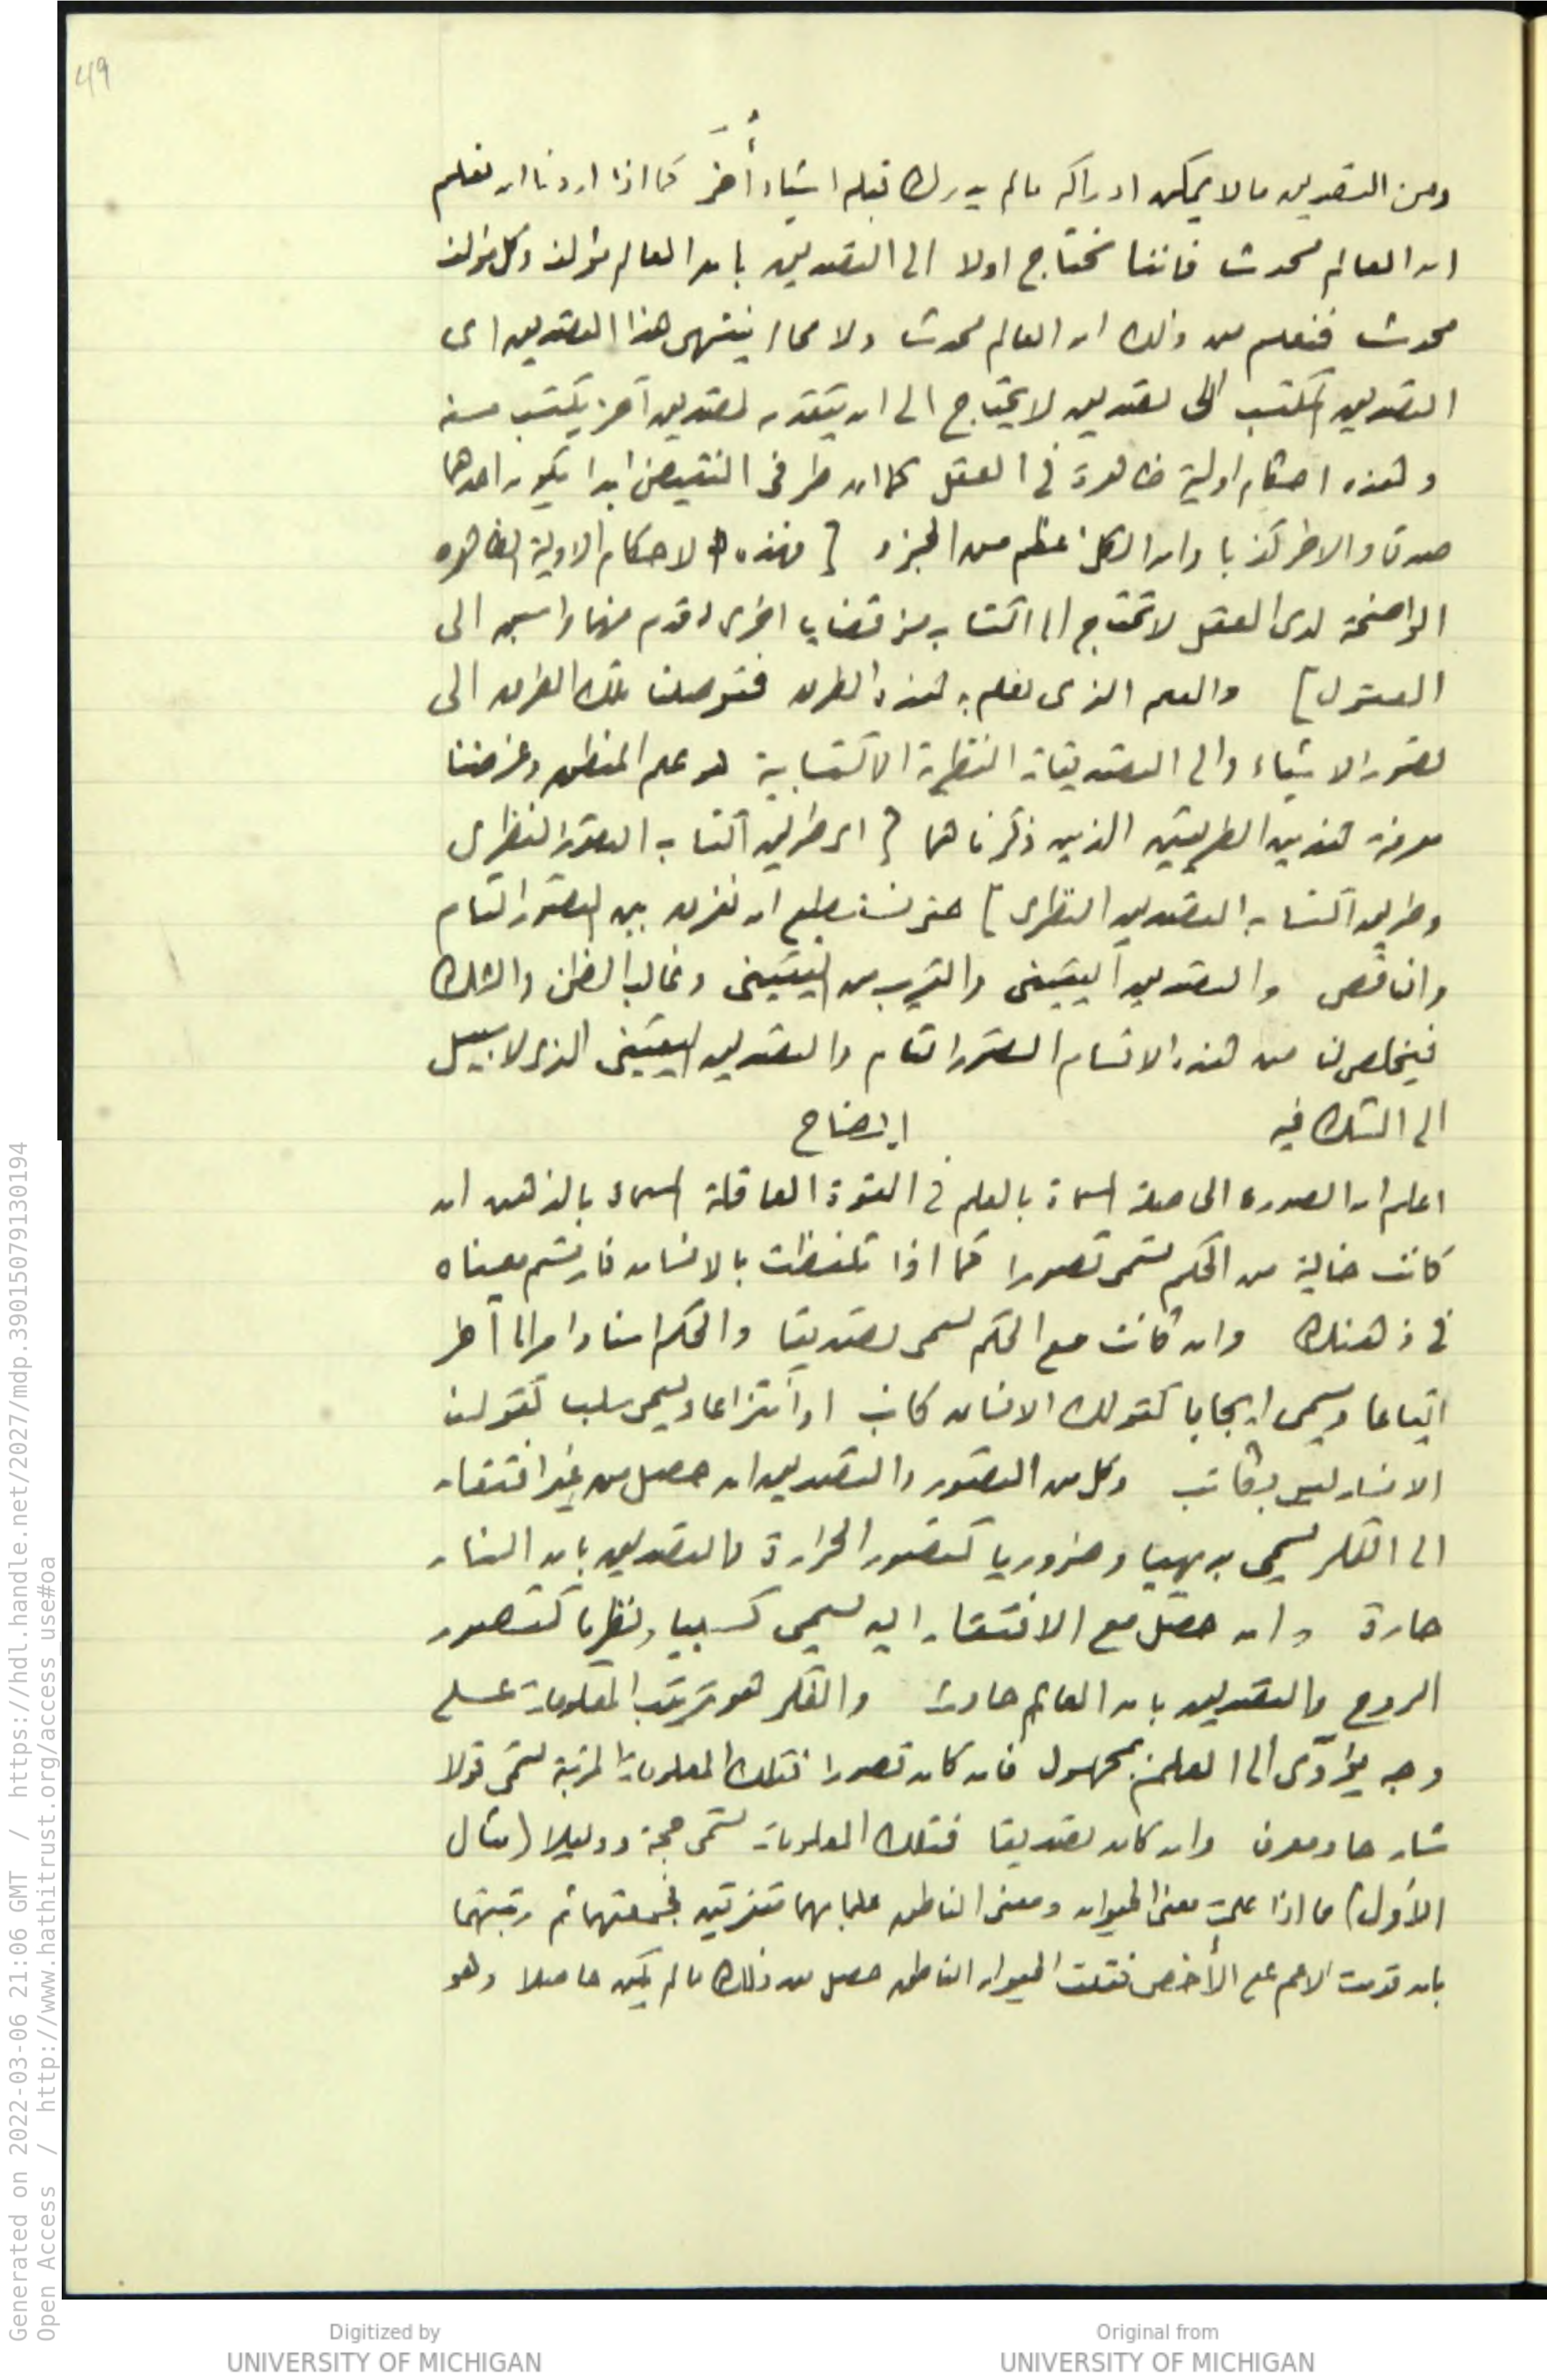 49
ومن التصديق مالا يمكن ادراكه مالم يدرك قبله اشياء أُخَر كما اذا اردنا ان نعلم
ان العالم محدث فاننا نحتاج اولا الى التصديق بان العالم مؤلف وكل مؤلف
محدث فنعلم من ذلك ان العالم محدث ولا محا ينتهى هذا التصديق اى
التصديق المكتسب الى تصديق لا يحتاج الى ان يتقدمه تصديق آخر يكتسب منه
وهذه احكام اولية ظاهرة فى العقل كما ان طرفى النقيض ابدا يكون احدهما
صدقا والاخر كذبا وان الكل اعظم من الجزء [ فهذه الاحكام الاولية الظاهره
الواضحة لدى العقل لا تحتاج الى اكتساب من قضايا اخرى اقدم منها واسبق الى
العقول ] والعلم الذى نعلم به هذه الطرق فتوصلنا تلك الطرق الى
تصور الاشياء والى التصديقات النظرية الاكتسابية هو علم المنطق وغرضنا
معرفة هذين الطريقين الذين ذكرناهما [ اى طريق اكتساب التصور النظرى
وطريق اكتساب التصديق النظرى ] حتى نستطيع ان نفرق بين التصور التام
والناقص والتصديق اليقينى والقريب من اليقينى وغالب الظن والشك
فيخلص لنا من هذه الاقسام التصور التام والتصديق اليقينى الذى لا سبيل
الى الشك فيه ايضاح
اعلم ان الصورة الحاصلة المسماة بالعلم فى القوة العاقلة المسماة بالذهن ان
كانت خالية من الحكم تسمى تصورا كما اذا تلفظت بالانسان فارتسم معناه
فى ذهنك وان كانت مع الحكم تسمى تصديقا والحكم اسناد امر الى آخر
ايقاعا ويسمى ايجابا كقولك الانسان كاتب او انتزاعا ويسمى سلبا كقولك
الانسان ليس بكاتب وكل من التصور والتصديق ان حصل من غير افتقار
الى الفكر يسمى بديهيا وضروريا كتصور الحرارة والتصديق بان النار
حارة وان حصل مع الافتقار اليه يسمى كسبيا ونظريا كتصور
الروح والتصديق بان العالم حادث والفكر هو ترتيب المعلومات على
وجه يؤدّى الى العلم بمجهول فان كان تصورا فتلك المعلومات المرتبة تسمى قولا
شارحا ومعرفا وان كان تصديقا فتلك المعلومات تسمى حجة ودليلا (مثال
الأول) ما اذا علمت معنى الحيوان ومعنى الناطق علما بهما متفرقين فجمعتهما ثم رتبتهما
بان قدمت الاعم على الأخص فقلت الحيوان الناطق حصل من ذلك ما لم يكن حاصلا وهو
Generated on 2022-03-06 21:06 GMT / https://hdl.handle.net/2027/mdp.39015079130194
Open Access / http://www.hathitrust.org/access_use#oa
Digitized by
UNIVERSITY OF MICHIGAN
Original from
UNIVERSITY OF MICHIGAN